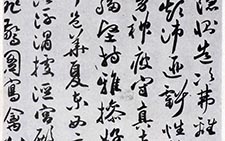 惻造次弗離
顛沛匪虧性
神疲守真志
堅持雅操好
邑華夏東西二
浮渭據涇宮殿
飛驚圖寫禽